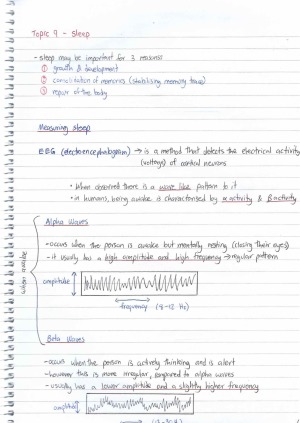 Topic 9 - Sleep
- sleep may be important for 3 reasons:
① growth & development
② consolidation of memories (stabilising memory trace)
③ repair of the body
Measuring sleep
EEG (electroencephalogram) → is a method that detects the electrical activity
(voltage) of cortical neurons
• When observed there is a wave like pattern to it
• in humans, being awake is characterised by α activity & β activity
when awake
Alpha Waves
- occurs when the person is awake but mentally resting (closing their eyes)
- it usually has a high amplitude and high frequency → regular pattern
amplitude
frequency (8-12 Hz)
Beta Waves
- occurs when the person is actively thinking and is alert
- however this is more irregular, compared to alpha waves
- usually has a lower amplitude and a slightly higher frequency
amplitude